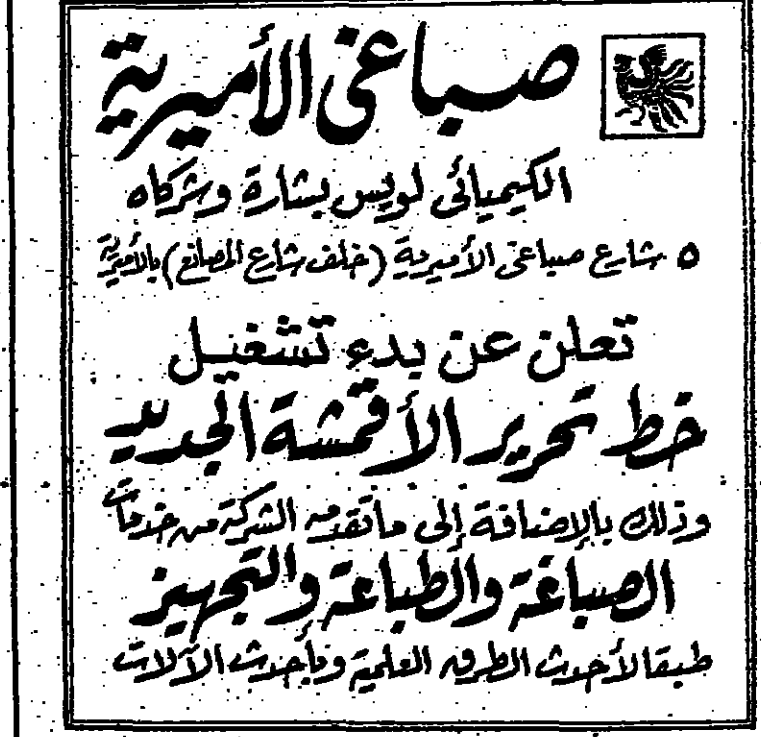 صباغى الأميرية
الكيميائى لويس بشارة وشركاه
٥ شارع صباغى الأميرية (خلف شارع المصانع) بالأميرية
تعلن عن بدء تشغيل
خط تحرير الأقمشة الجديد
وذلك بالإضافة إلى ماتقدمه الشركة من خدمات
الصباغة والطباعة والتجهيز
طبقا لأحدث الطرق العلمية وبأحدث الآلات